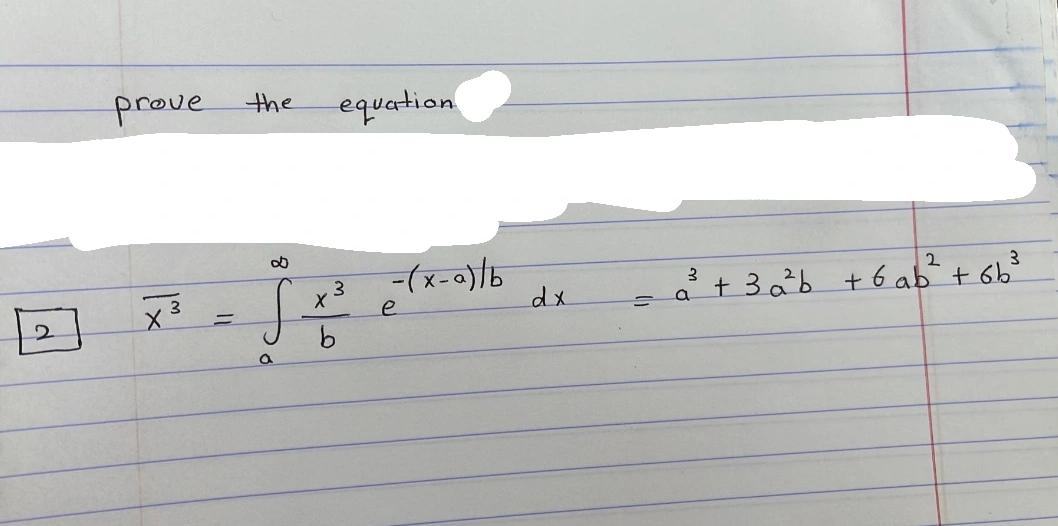 prove the equation
2 x̄³ = ∫ₐ^∞ x³/b e^-(x-a)/b dx = a³ + 3a²b + 6ab² + 6b³